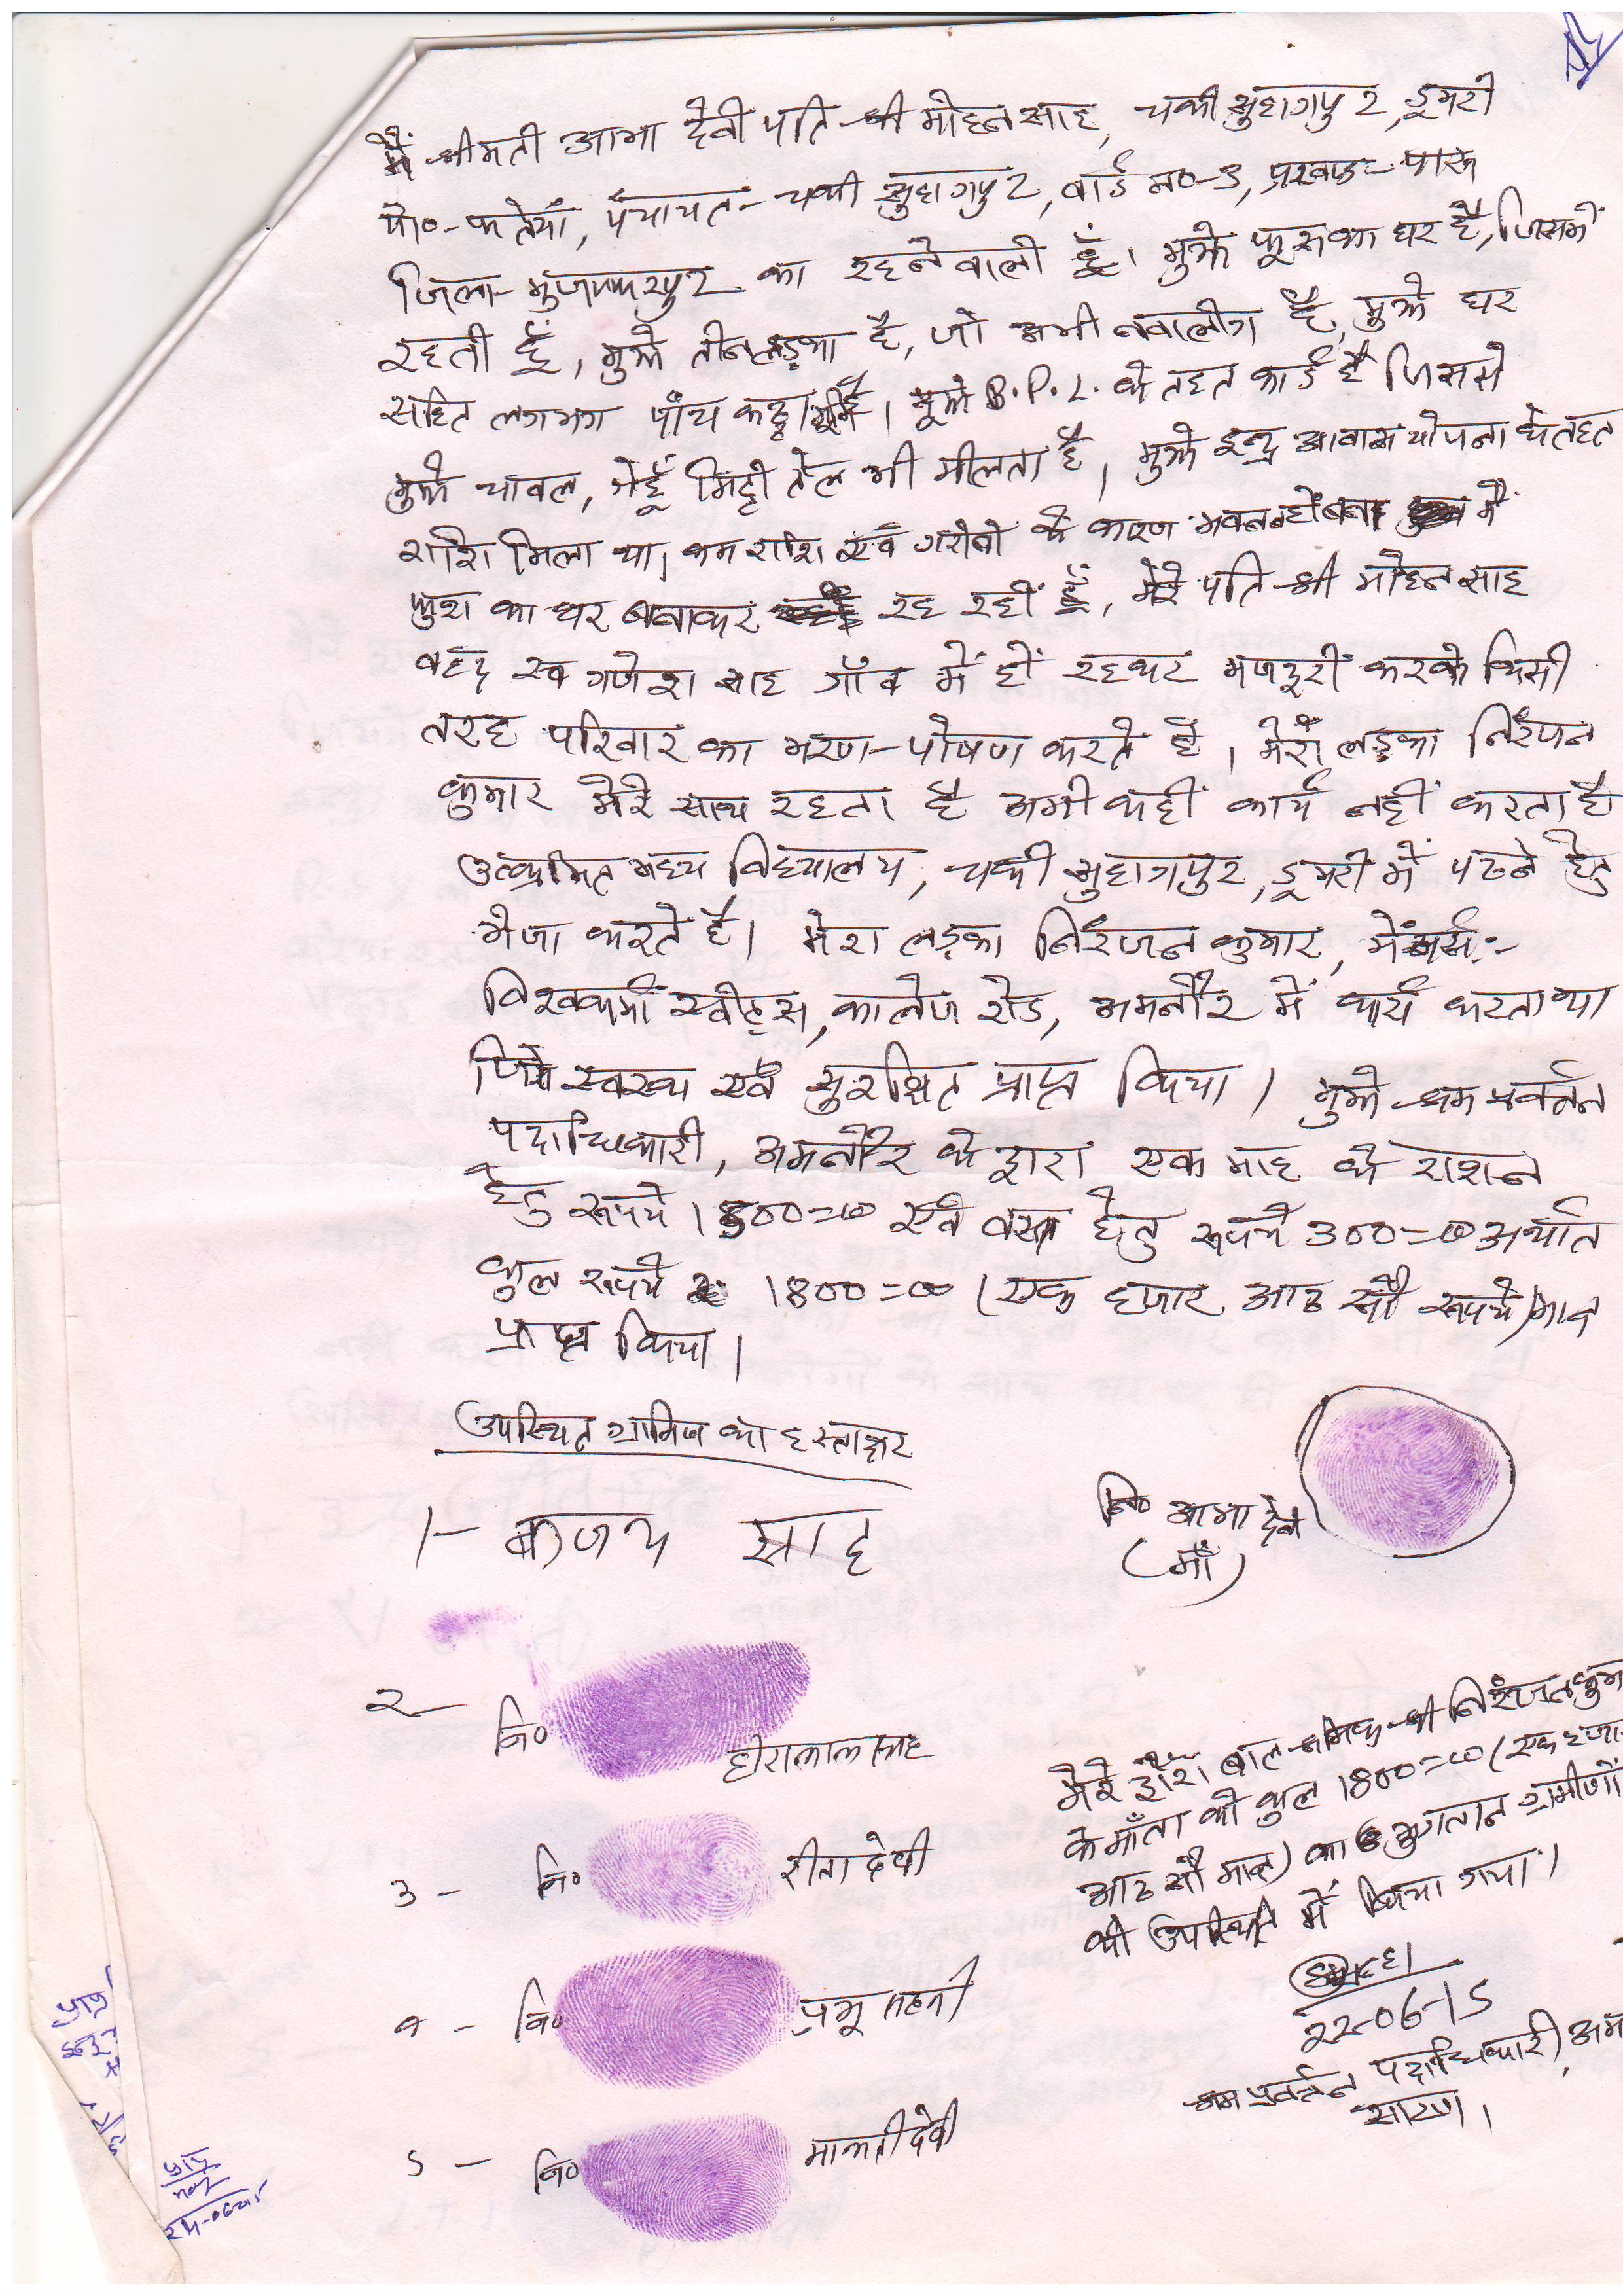 मैं श्रीमती आभा देवी पति श्री मोहन साह, चक्की सुहागपुर, डूमरी
पो०-फतेयाँ, पंचायत- चक्की सुहागपुर, वार्ड न०-3, प्रखण्ड- पारू
जिला- मुजफ्फरपुर का रहनेवाली हूँ। मुझे फूस का घर है, जिसमें
रहती हूँ, मुझे तीन लड़का है, जो अभी नबालीग है, मुझे घर
सहित लगभग पांच कट्ठा भूमि है। मुझे B.P.L. के तहत कार्ड है जिससे
मुझे चावल, गेहूँ मिट्टी तेल भी मीलता है, मुझे इन्द्र आवास योजना के तहत
राशि मिला था, कम राशि एवं गरीबी के कारण मकान नहीं बना में
फुश का घर बनाकर रह रहीं हूँ, मेरे पति श्री मोहन साह
वल्द स्व गणेश साह गाँव में हीं रहकर मजदूरी करके किसी
तरह परिवार का भरण-पोषण करते है। मेरा लड़का निरंजन
कुमार मेरे साथ रहता है अभी कहीं कार्य नहीं करता है
उत्क्रमित मध्य विध्यालय, चक्की सुहागपुर, डूमरी में पढने हेतु
भेजा करते है। मेरा लड़का निरंजन कुमार, मेसर्स:-
विश्वकर्मा स्वीट्स, कालेज रोड, अमनौर में कार्य करता था
जिसे स्वस्थ एवं सुरक्षित प्राप्त किया। मुझे श्रम प्रवर्तन
पदाधिकारी, अमनौर के द्वारा एक माह के राशन
हेतु रूपये 1500=00 एवं वस्त्र हेतु रूपये 300=00 अर्थात
कुल रूपये 1800=00 (एक हजार आठ सौ रूपये) मात्र
प्राप्त किया।
उपस्थित ग्रामिण का हस्ताक्षर
नि० आभा देवी
(माँ)
1- साह
२- नि० हीरालाल साह
3 - नि० रीता देवी
४ - नि० प्रभू
5 - नि० मालती देवी
मेरे द्वारा बाल श्रमिक श्री निरंजन कुमा
के माँता को कुल 1800=00 (एक हजा
आठ सौ मात्र) का भुगतान ग्रामीणों
की उपस्थिति में किया गया।
22-06-15
श्रम प्रवर्तन पदाधिकारी, अम
सारण।